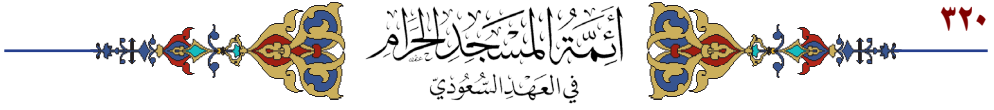 ٣٢٠
أَئِمَّةُ المَسْجِدِ الحَرَامِ
في العَهْدِ السُّعُودِيّ